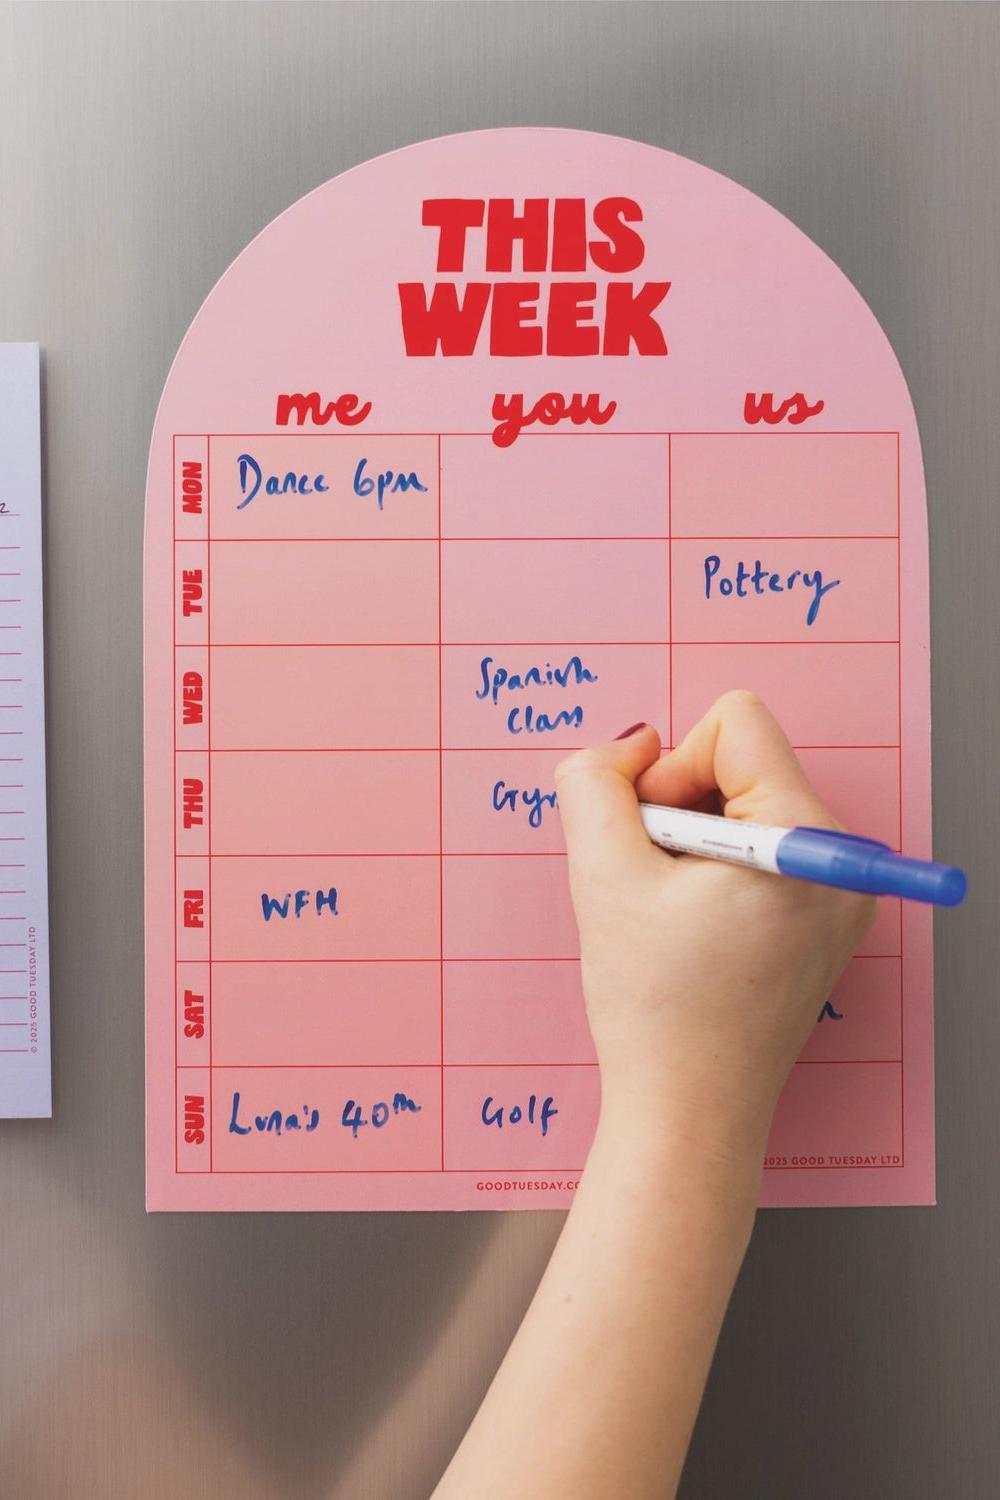 THIS
WEEK
me you us
MON Dance 6pm
TUE Pottery
WED Spanish
Class
THU Gym
FRI WFH
SAT
SUN Luna's 40th Golf
2025 GOOD TUESDAY LTD
GOODTUESDAY.CO
© 2025 GOOD TUESDAY LTD